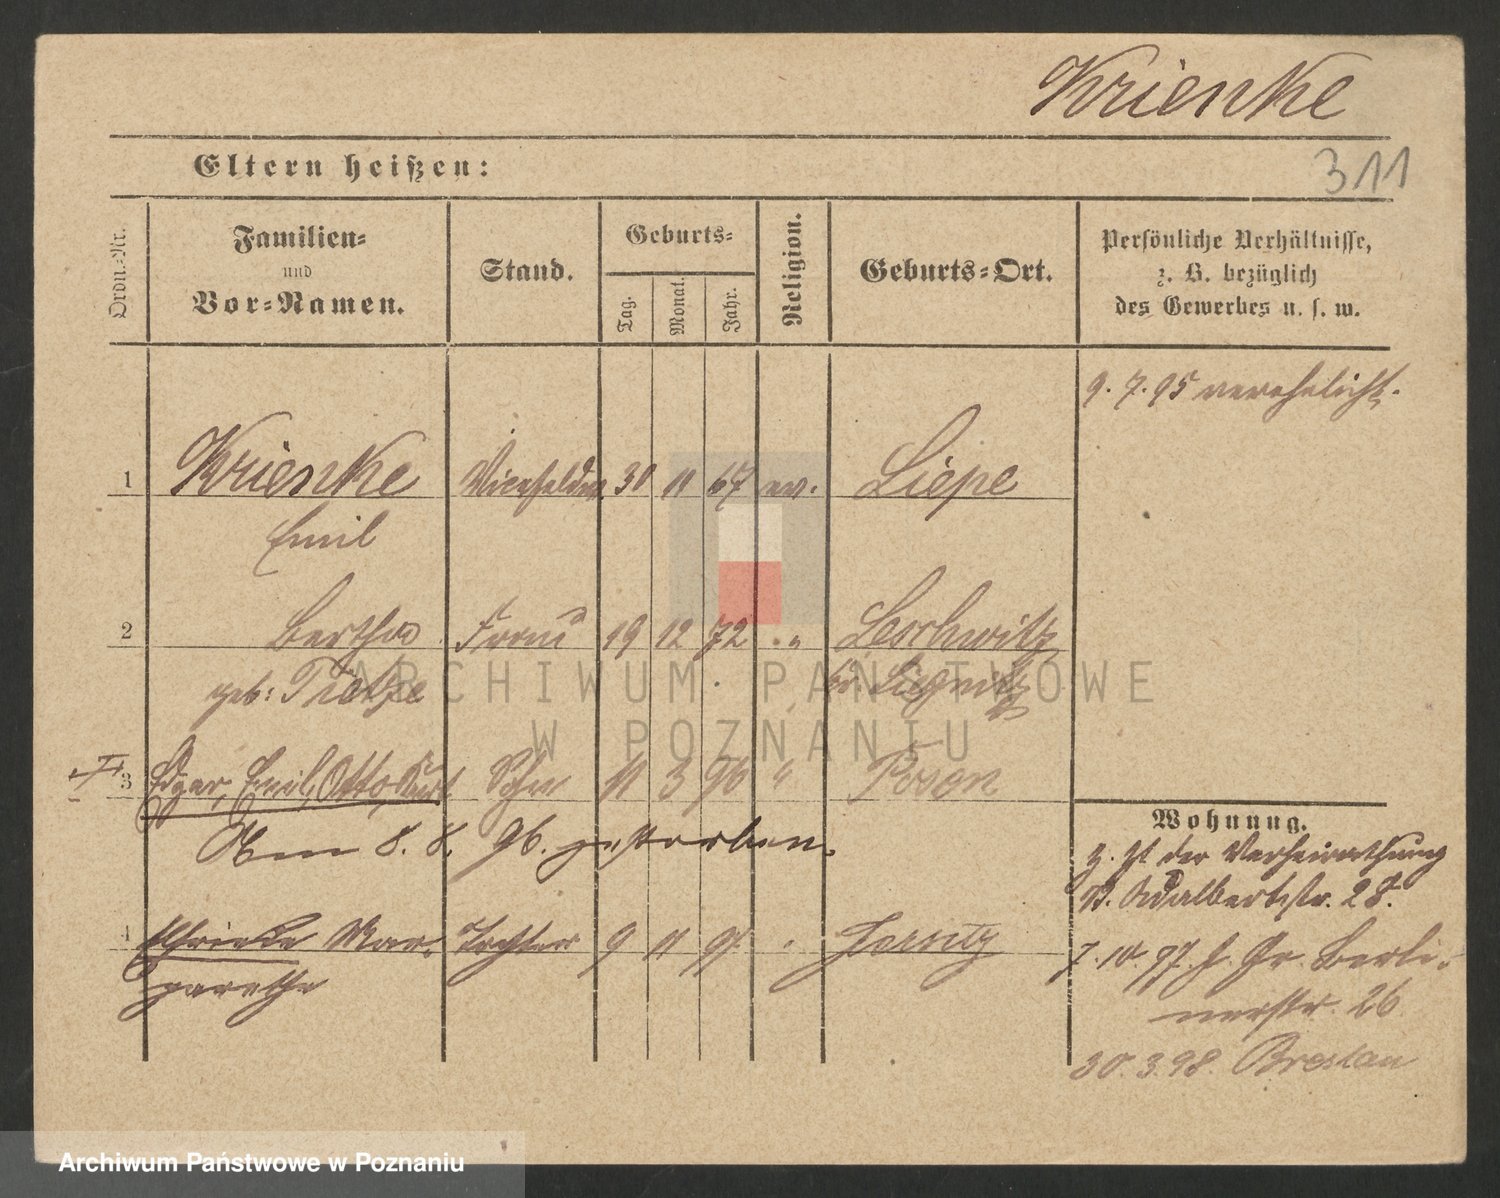 Krienke
Eltern heißen:
311
Ordn.-Nr.
Familien-
und
Vor-Namen.
Stand.
Geburts-
Tag.
Monat.
Jahr.
Religion.
Geburts-Ort.
Persönliche Verhältnisse,
z. B. bezüglich
des Gewerbes u. s. w.
9. 7. 95 verehelicht.
1 Krienke Vicefeldw. 30 11 67 ev. Liepe
Emil
2 Bertha Frau 19 12 72 " Leschwitz
geb: Tietze b. Liegnitz
3 Edgar, Emil, Otto, Kurt Sohn 11 3 96 " Posen
Am 8. 8. 96. gestorben.
Wohnung.
z. Zt der Verheirathung
St. Adalbertstr. 28.
4 Mar- Tochter 9 11 97 Jersitz
garethe
7. 10. 97. J. Gr. Berli-
nerstr. 26
30. 3. 98. Breslau
ARCHIWUM PAŃSTWOWE
W POZNANIU
Archiwum Państwowe w Poznaniu